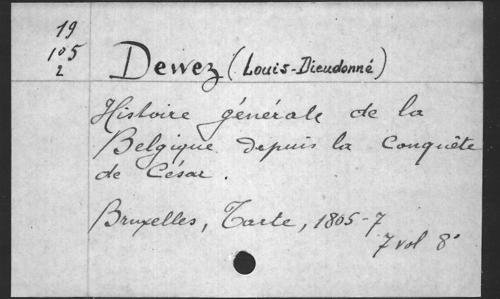 19
105
2
Dewez (Louis-Dieudonné)
Histoire générale de la
Belgique depuis la Conquête
de César.
Bruxelles, Tarte, 1805-7
7 vol 8°